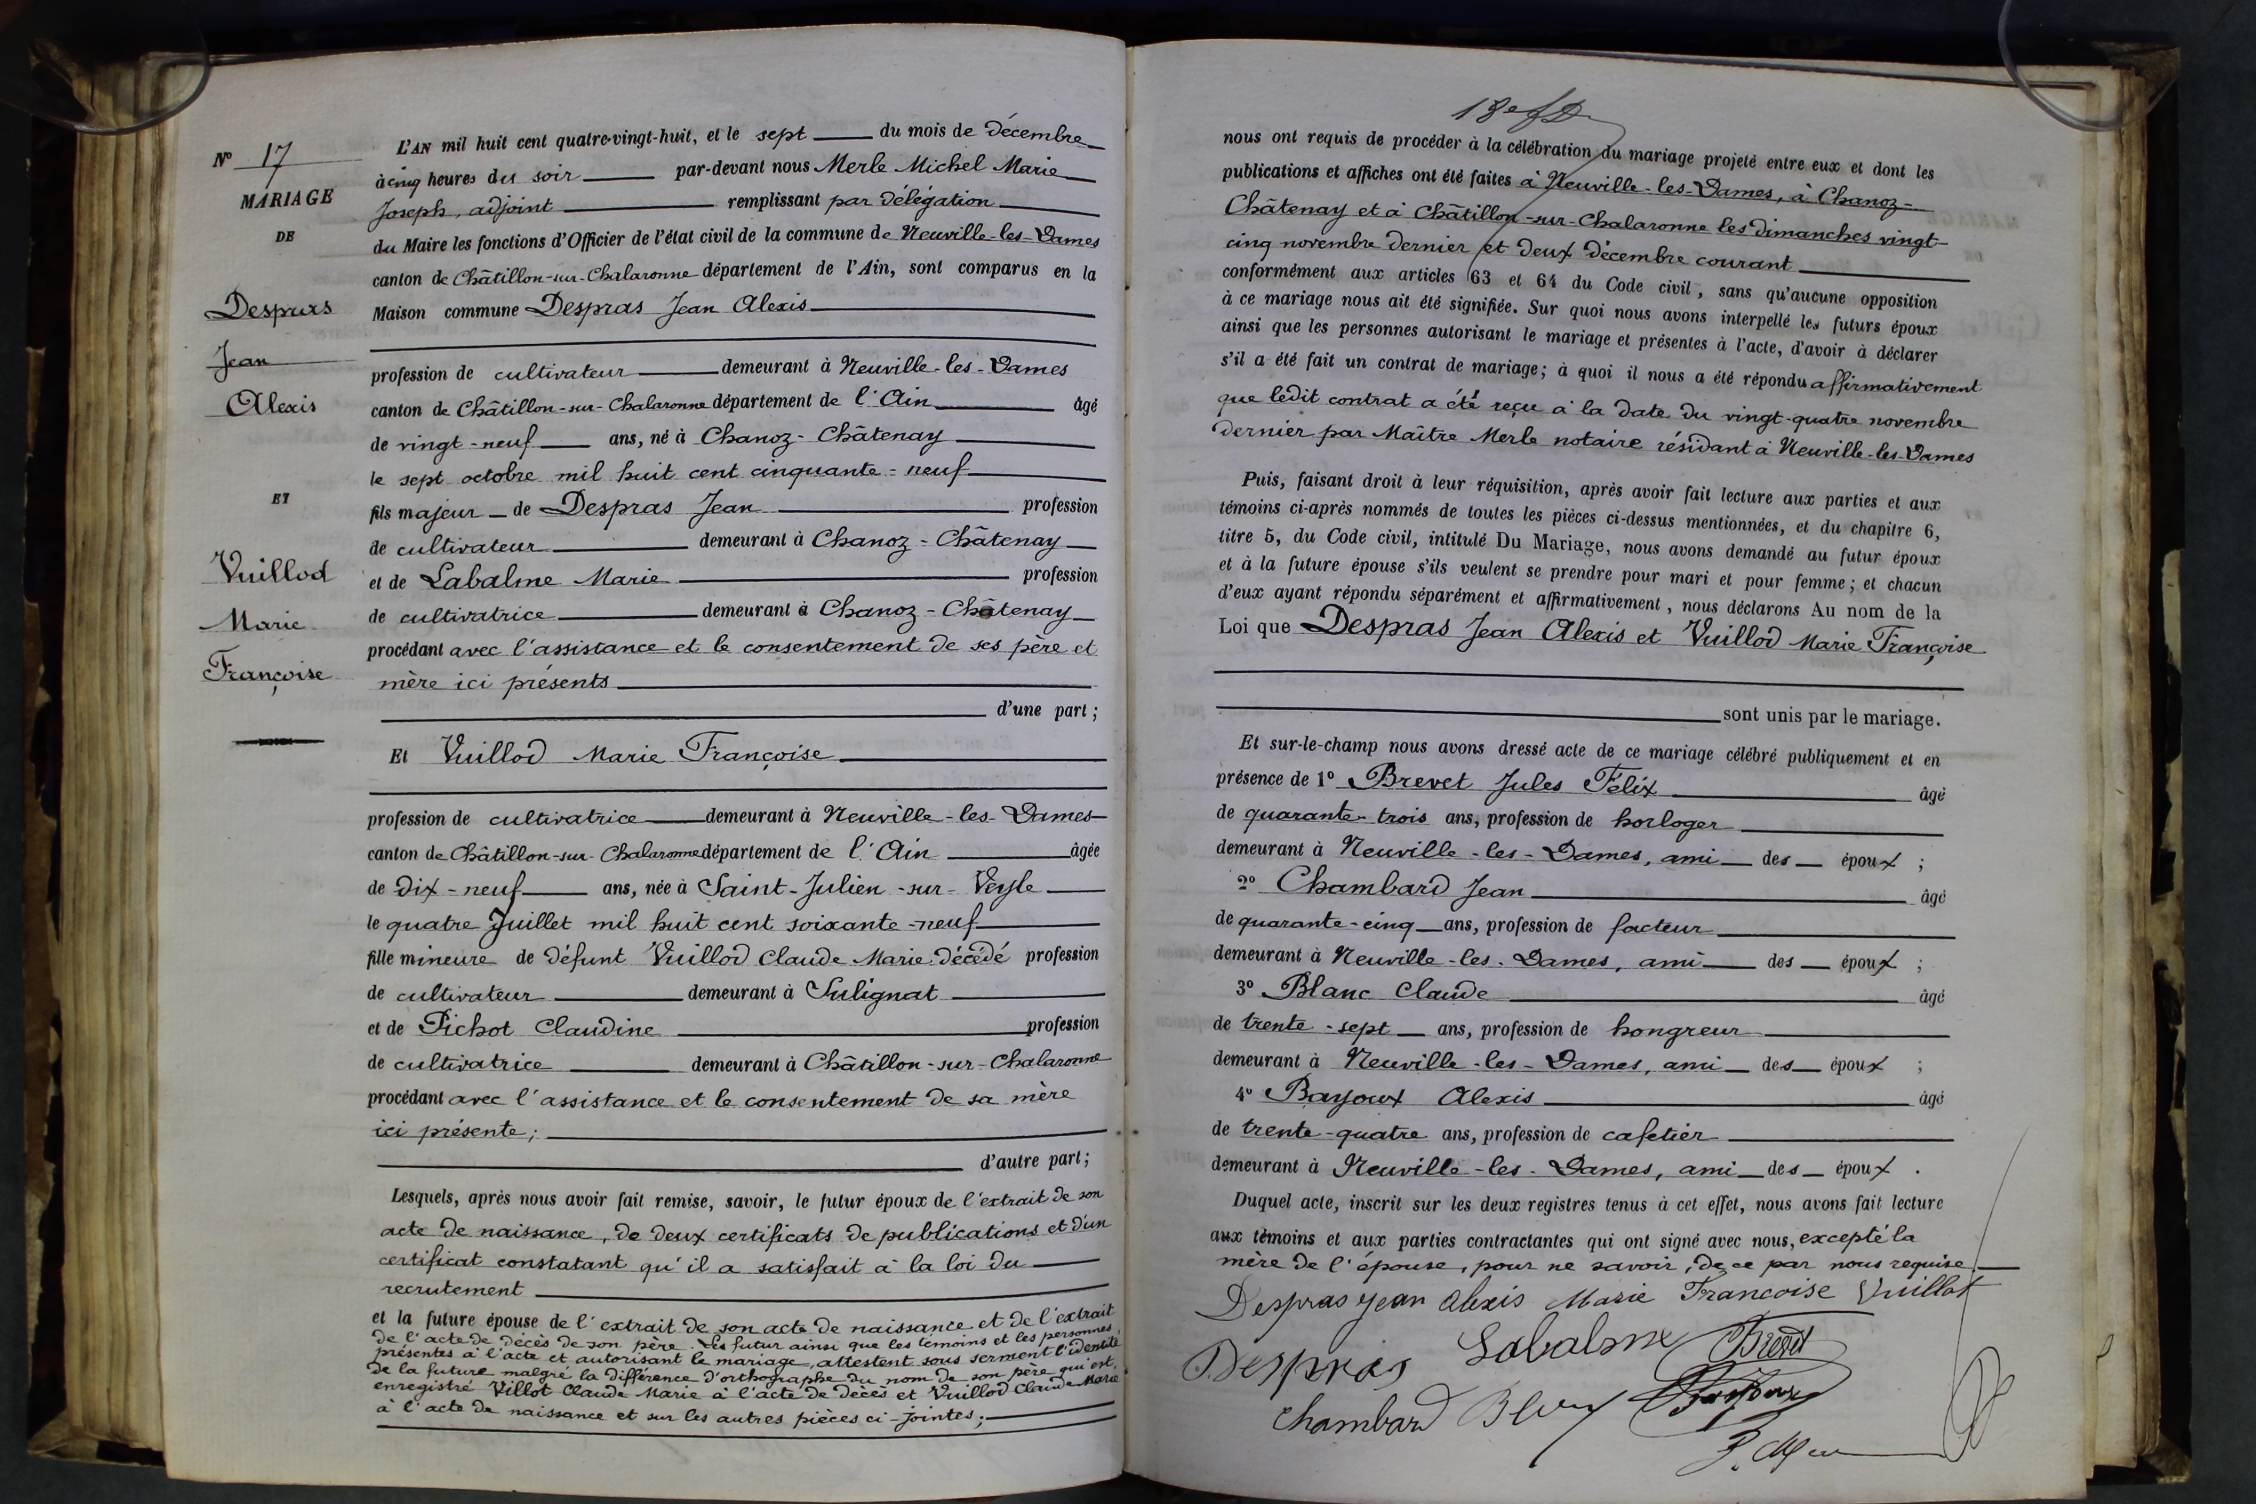 N° 17
MARIAGE
DE
Despras
Jean
Alexis
ET
Vuillod
Marie
Françoise
L'AN mil huit cent quatre-vingt-huit, et le sept du mois de Décembre
à cinq heures du soir par-devant nous Merle Michel Marie
Joseph, adjoint remplissant par délégation
du Maire les fonctions d'Officier de l'état civil de la commune de Neuville-les-Dames
canton de Châtillon-sur-Chalaronne département de l'Ain, sont comparus en la
Maison commune Despras Jean Alexis
profession de cultivateur demeurant à Neuville-les-Dames
canton de Châtillon-sur-Chalaronne département de l'Ain âgé
de vingt-neuf ans, né à Chanoz-Châtenay
le sept octobre mil huit cent cinquante-neuf
fils majeur de Despras Jean profession
de cultivateur demeurant à Chanoz-Châtenay
et de Labalme Marie profession
de cultivatrice demeurant à Chanoz-Châtenay
procédant avec l'assistance et le consentement de ses père et
mère ici présents
d'une part;
Et Vuillod Marie Françoise
profession de cultivatrice demeurant à Neuville-les-Dames
canton de Châtillon-sur-Chalaronne département de l'Ain âgée
de dix-neuf ans, née à Saint-Julien-sur-Veyle
le quatre Juillet mil huit cent soixante-neuf
fille mineure de défunt Vuillod Claude Marie décédé profession
de cultivateur demeurant à Sulignat
et de Pichot Claudine profession
de cultivatrice demeurant à Châtillon-sur-Chalaronne
procédant avec l'assistance et le consentement de sa mère
ici présente;
d'autre part;
Lesquels, après nous avoir fait remise, savoir, le futur époux de l'extrait de son
acte de naissance, de deux certificats de publications et d'un
certificat constatant qu'il a satisfait à la loi du
recrutement
et la future épouse de l'extrait de son acte de naissance et de l'extrait
de l'acte de décès de son père. Les futur ainsi que les témoins et les personnes
présentes à l'acte et autorisant le mariage, attestent sous serment l'identité
de la future malgré la différence d'orthographe du nom de son père qui est
enregistré Villot Claude Marie à l'acte de décès et Vuillod Claude Marie
à l'acte de naissance et sur les autres pièces ci-jointes;
nous ont requis de procéder à la célébration du mariage projeté entre eux et dont les
publications et affiches ont été faites à Neuville-les-Dames, à Chanoz-
Châtenay et à Châtillon-sur-Chalaronne les dimanches vingt-
cinq novembre dernier et deux Décembre courant
conformément aux articles 63 et 64 du Code civil, sans qu'aucune opposition
à ce mariage nous ait été signifiée. Sur quoi nous avons interpellé les futurs époux
ainsi que les personnes autorisant le mariage et présentes à l'acte, d'avoir à déclarer
s'il a été fait un contrat de mariage; à quoi il nous a été répondu affirmativement
que ledit contrat a été reçu à la date du vingt-quatre novembre
dernier par Maître Merle notaire résidant à Neuville-les-Dames
Puis, faisant droit à leur réquisition, après avoir fait lecture aux parties et aux
témoins ci-après nommés de toutes les pièces ci-dessus mentionnées, et du chapitre 6,
titre 5, du Code civil, intitulé Du Mariage, nous avons demandé au futur époux
et à la future épouse s'ils veulent se prendre pour mari et pour femme; et chacun
d'eux ayant répondu séparément et affirmativement, nous déclarons Au nom de la
Loi que Despras Jean Alexis et Vuillod Marie Françoise
sont unis par le mariage.
Et sur-le-champ nous avons dressé acte de ce mariage célébré publiquement et en
présence de 1° Brevet Jules Félix âgé
de quarante-trois ans, profession de horloger
demeurant à Neuville-les-Dames, ami des époux;
2° Chambard Jean âgé
de quarante-cinq ans, profession de facteur
demeurant à Neuville-les-Dames, ami des époux;
3° Blanc Claude âgé
de trente-sept ans, profession de hongreur
demeurant à Neuville-les-Dames, ami des époux;
4° Bayoux Alexis âgé
de trente-quatre ans, profession de cafetier
demeurant à Neuville-les-Dames, ami des époux.
Duquel acte, inscrit sur les deux registres tenus à cet effet, nous avons fait lecture
aux témoins et aux parties contractantes qui ont signé avec nous, excepté la
mère de l'épouse, pour ne savoir, de ce par nous requise.
Despras Jean Alexis Marie Francoise Vuillot
Despras Labalme Brevet
Chambard